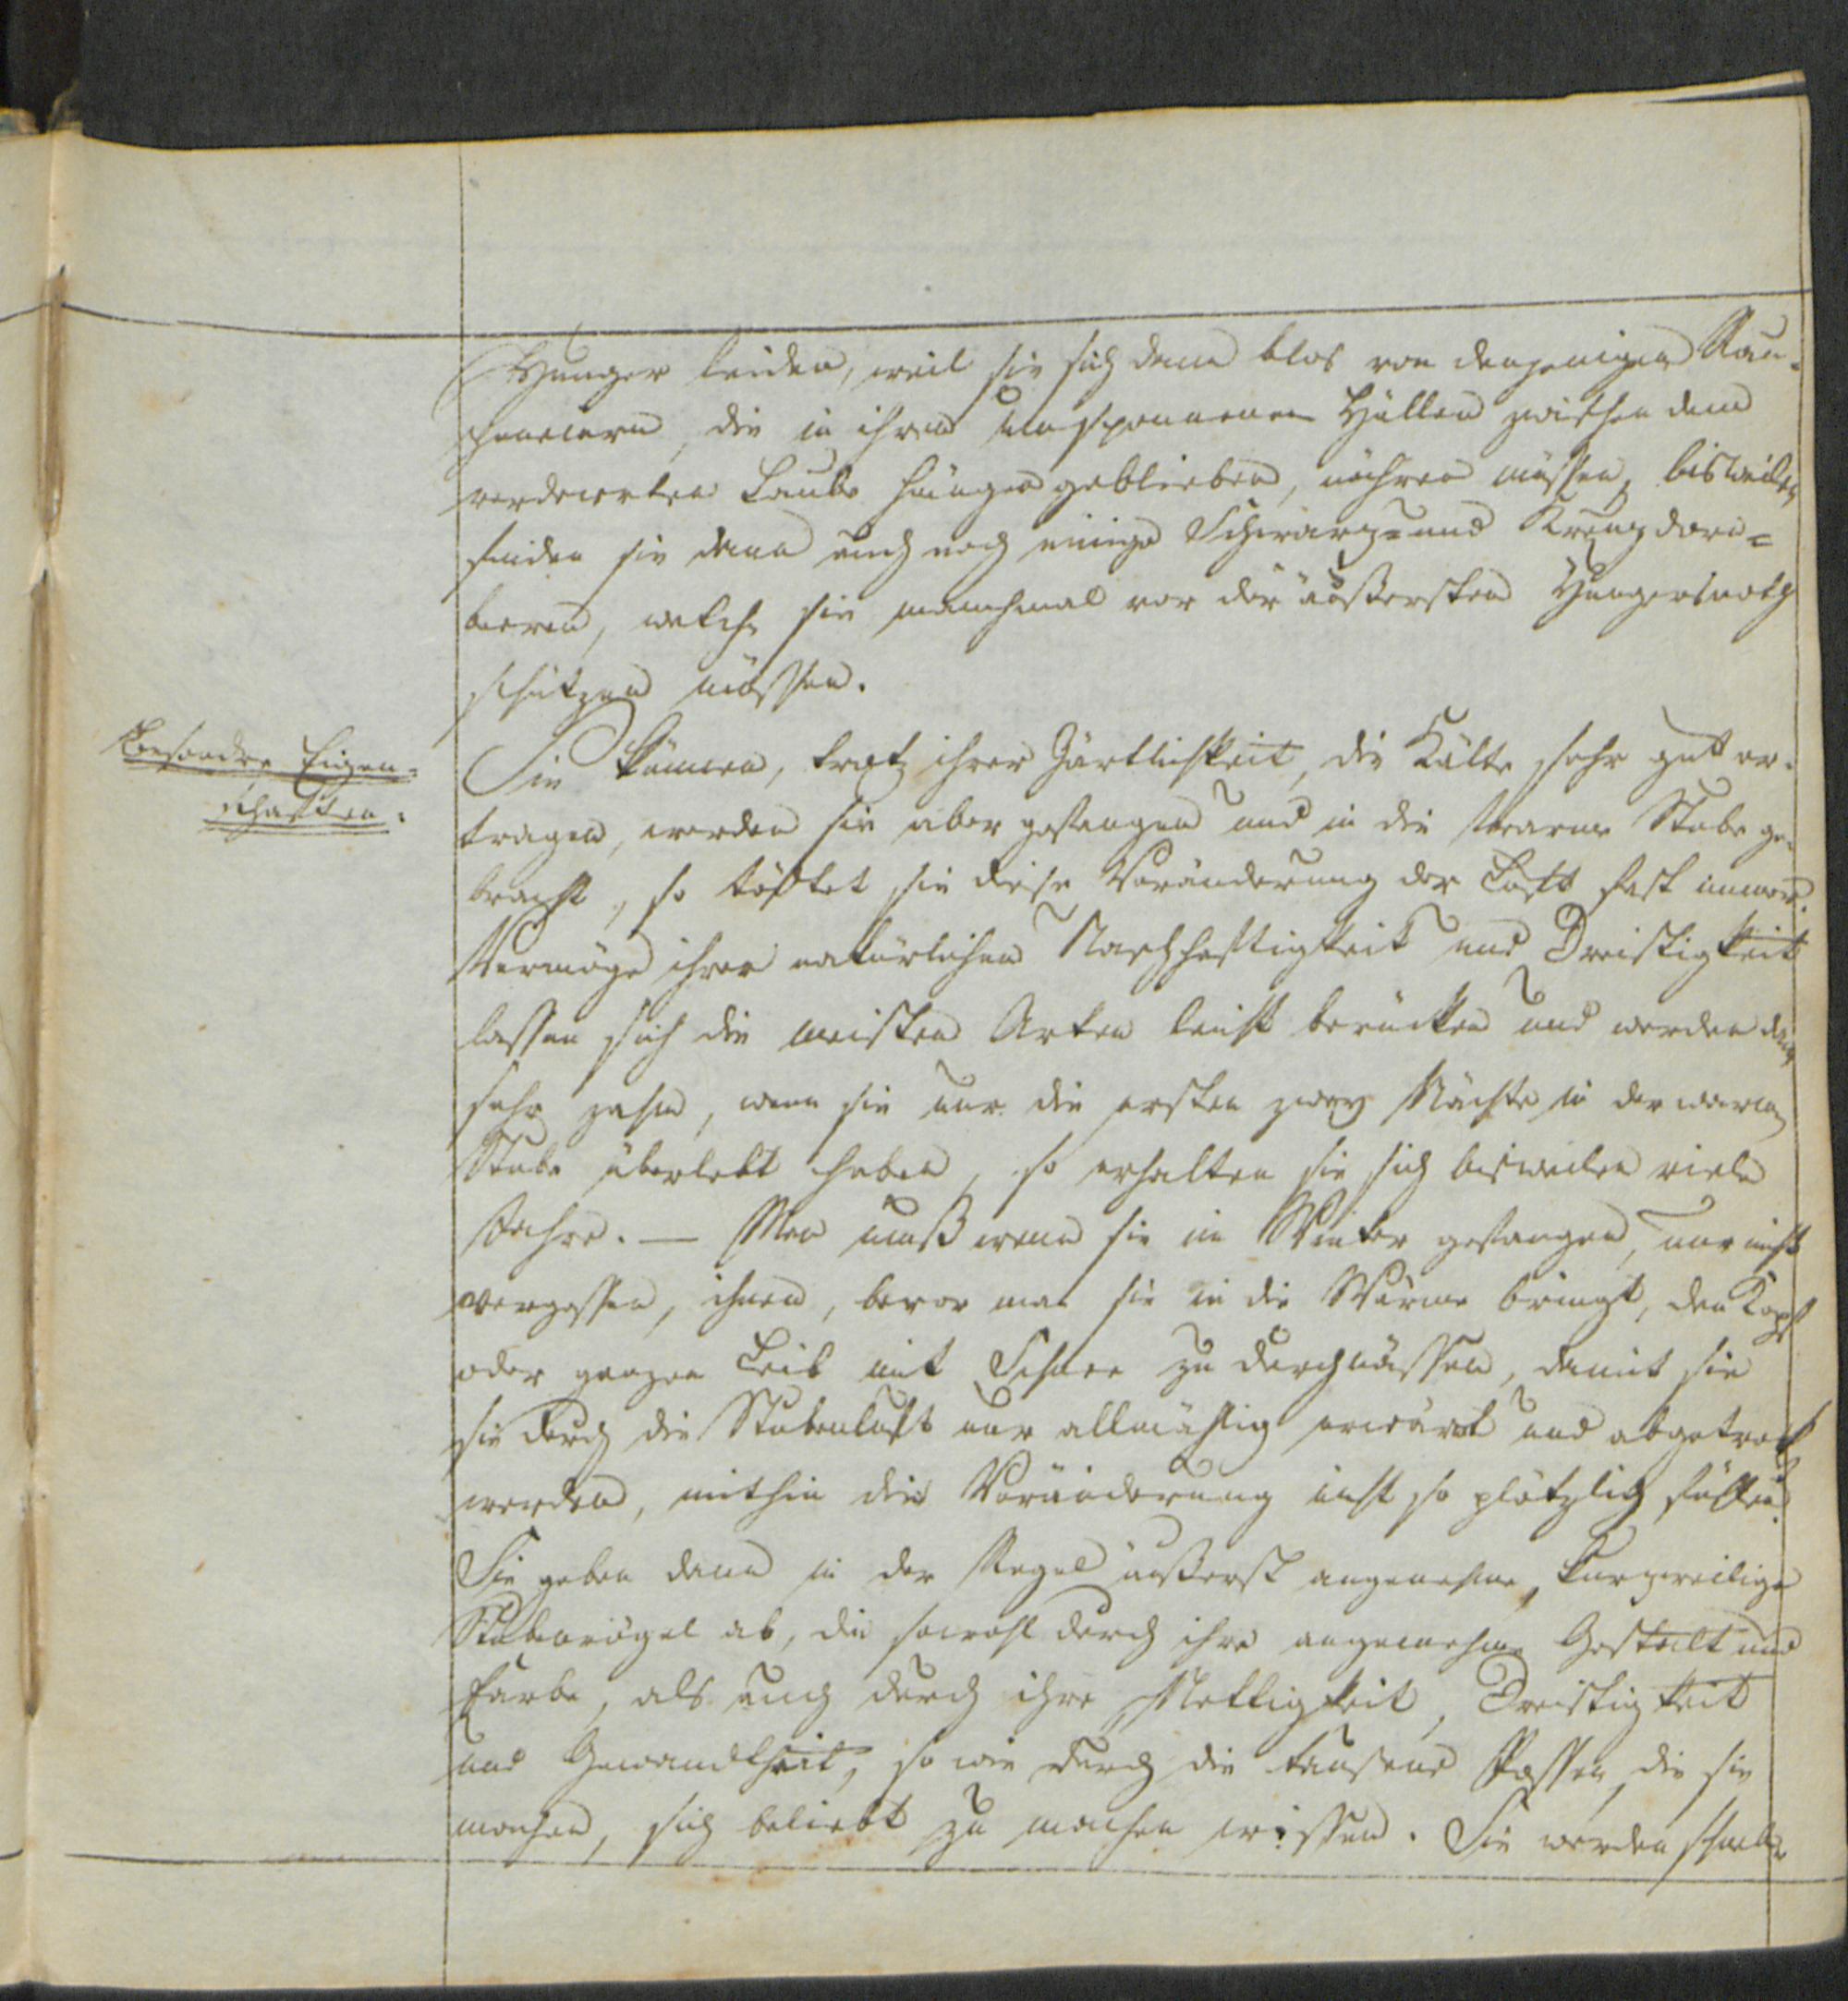 Hunger leiden, weil sie sich dann blos von denjenigen Rau-
peneiern, die in ihren umsponnenen Hüllen zwischen dem
verdorrten Laube hängen geblieben, nähren müssen, bisweilen
finden sie dann auch noch einige Schwarz- und Kreuzdorn=
beeren, welche sie manchmal vor der äußersten Hungersnoth
schützen müssen.
Besondre Eigen-
schaften.
Sie können, trotz ihrer Zärtlichkeit, die Kälte sehr gut er-
tragen, werden sie aber gefangen und in die warme Stube ge-
bracht, so tödtet sie diese Veränderung der Luft fast immer.
Vermöge ihrer natürlichen Naschhaftigkeit und Dreistigkeit
lassen sich die meisten Arten leicht berücken und werden dann
sehr zahm, wenn sie nur die ersten zwey Nächte in der warmen
Stube überlebt haben, so erhalten sie sich bisweilen viele
Jahre. — Man muß wenn sie im Winter gefangen, nur nicht
vergessen, ihnen, bevor man sie in die Wärme bringt, den Kopf
oder ganzen Leib mit Schnee zu durchnässen, damit sie
sie durch die Stubenluft nur allmählig erwärmt und
werden, mithin die Veränderung nicht so plötzlich fühlen.
Sie geben dann in der Regel äußerst angenehme, kurzweilige
Stubenvögel ab, die sowohl durch ihre angenehme Gestalt und
Farbe, als auch durch ihre Nettigkeit, Dreistigkeit
und Gewandtheit, so wie durch die tausend Possen, die sie
machen, sich beliebt zu machen wissen. Sie werden